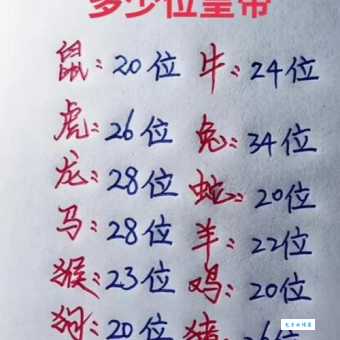 多少位皇帝
鼠:20位 牛:24位
虎:26位 兔:34位
龙:28位 蛇:20位
马:28位 羊:22位
猴:23位 鸡:20位
狗:20位 猪:26位